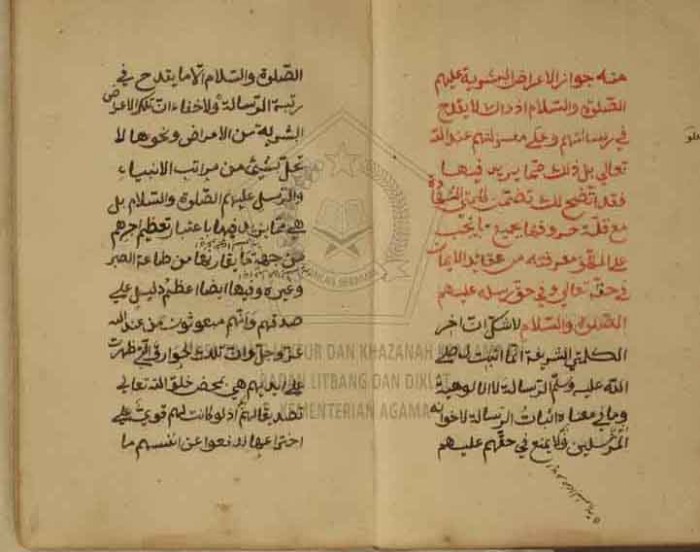 منه جواز الاعراض البشرية عليهم
الصلوة والسلام اذ ذاك لا يقدح
في رسالتهم وعلي منزلتهم عند الله
تعالي بل ذلك مما يزيد فيها
فقد اتضح لك تضمن كلمتي الشهادة
مع قلة حروفها بجميع ما يجب
على المكلف معرفته من عقائد الايمان
في حقه تعالي وفي حق رسله عليهم
الصلوة والسلام لا شك ان اخر
الكلمتي الشريفة انما اثبت له صلي
الله عليه وسلم الرسالة لا الالوهية
وما في معناه اثبات الرسالة لاخوانه
المرسلين فلا يمنع في حقهم عليهم
الصلوة والسلام الا ما يقدح في
رتبة الرسالة ولا خفاء ان تلك الاعراض
البشرية من الامراض ونحوها لا
تخل بشيئ من مراتب الانبياء
والرسل عليهم الصلوة والسلام بل
هي مما يزيد فيها باعتبار تعظيم اجرهم
من جهة ما يقارنها من طاعة الصبر
وغيره وفيها ايضا اعظم دليل علي
صدقهم وانهم مبعوثون من عند الله
عز وجل وان تلك الخوارق التي ظهرت
على ايديهم هي بمحض خلق الله تعالي
تصديقا لهم اذ لو كانت لهم قوة علي
اختراعها لدفعوا عن انفسهم ما
LEKTUR DAN KHAZANAH
BADAN LITBANG DAN DIKLAT
KEMENTERIAN AGAMA